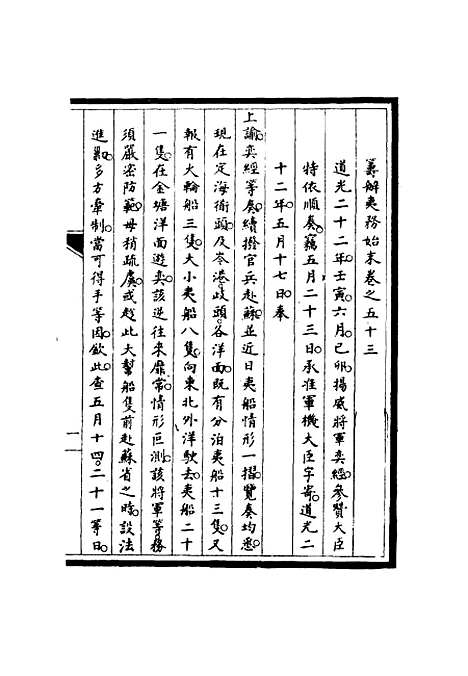 籌辦夷務始末卷之五十三
道光二十二年壬寅六月己卯揚威將軍奕經參贊大臣
特依順奏竊五月二十三日承准軍機大臣字寄道光二
十二年五月十七日奉
上諭奕經等奏續撥官兵赴蘇並近日夷船情形一摺覽奏均悉
現在定海衜頭及岑港岐頭各洋面既有分泊夷船十三隻又
報有火輪船三隻大小夷船八隻向東北外洋駛去夷船二十
一隻在金塘洋面遊奕該逆往來靡常情形叵測該將軍等務
須嚴密防範毋稍疏虞或趁此大幫船隻前赴蘇省之時設法
進剿多方牽制當可得手等因欽此查五月十四二十一等日